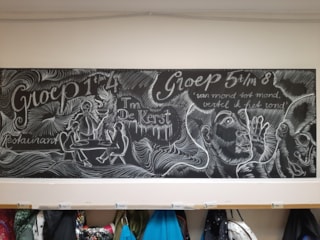 Groep 1 t/m 4
Restaurant
I'm
De Kerst
Groep 5 t/m 8
'van mond tot mond,
vertel ik het rond'